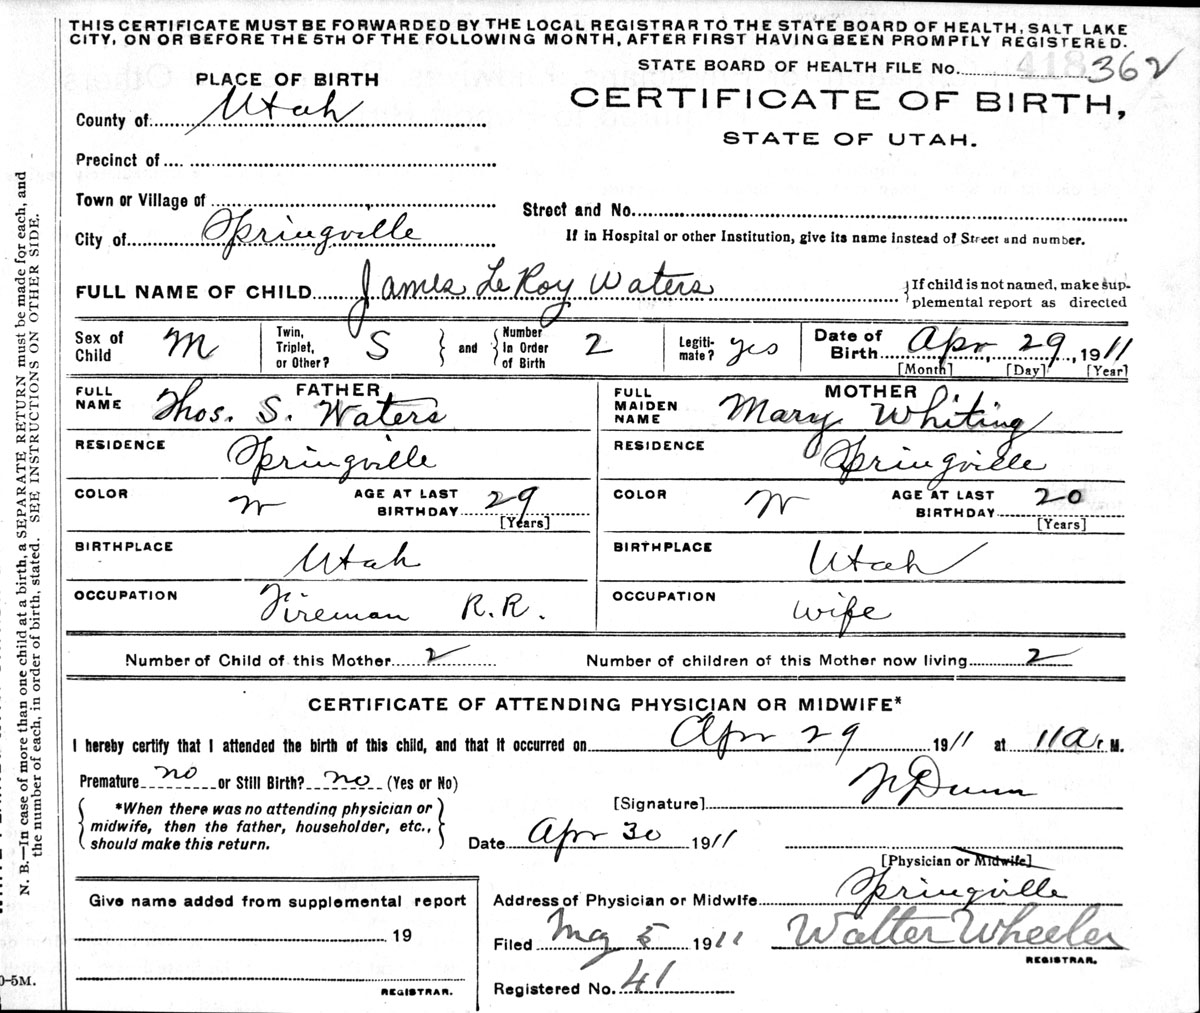 THIS CERTIFICATE MUST BE FORWARDED BY THE LOCAL REGISTRAR TO THE STATE BOARD OF HEALTH, SALT LAKE
CITY, ON OR BEFORE THE 5TH OF THE FOLLOWING MONTH, AFTER FIRST HAVING BEEN PROMPTLY REGISTERED.
STATE BOARD OF HEALTH FILE No. 362
PLACE OF BIRTH
CERTIFICATE OF BIRTH,
STATE OF UTAH.
County of Utah
Precinct of
Town or Village of
Street and No.
City of Springville
If in Hospital or other Institution, give its name instead of Street and number.
FULL NAME OF CHILD James LeRoy Waters
If child is not named, make sup-
plemental report as directed
Sex of Child M
Twin, Triplet, or Other? S
and
Number In Order of Birth 2
Legiti-mate? yes
Date of Birth Apr 29, 1911
[Month] [Day] [Year]
FATHER
FULL NAME Thos. S. Waters
MOTHER
FULL MAIDEN NAME Mary Whiting
RESIDENCE Springville
RESIDENCE Springville
COLOR W AGE AT LAST BIRTHDAY 29 [Years]
COLOR W AGE AT LAST BIRTHDAY 20 [Years]
BIRTHPLACE Utah
BIRTHPLACE Utah
OCCUPATION Fireman R.R.
OCCUPATION wife
Number of Child of this Mother 2
Number of children of this Mother now living 2
CERTIFICATE OF ATTENDING PHYSICIAN OR MIDWIFE*
I hereby certify that I attended the birth of this child, and that it occurred on Apr 29 1911 at 11 a. M.
Premature no or Still Birth? no (Yes or No)
*When there was no attending physician or
midwife, then the father, householder, etc.,
should make this return.
[Signature] Dunn
Date Apr 30 1911
[Physician or Midwife]
Address of Physician or Midwife Springville
Give name added from supplemental report
19
REGISTRAR.
Filed May 5 1911 Walter Wheeler
REGISTRAR.
Registered No. 41
N. B.—In case of more than one child at a birth, a SEPARATE RETURN must be made for each, and
the number of each, in order of birth, stated. SEE INSTRUCTIONS ON OTHER SIDE.
0-5M.